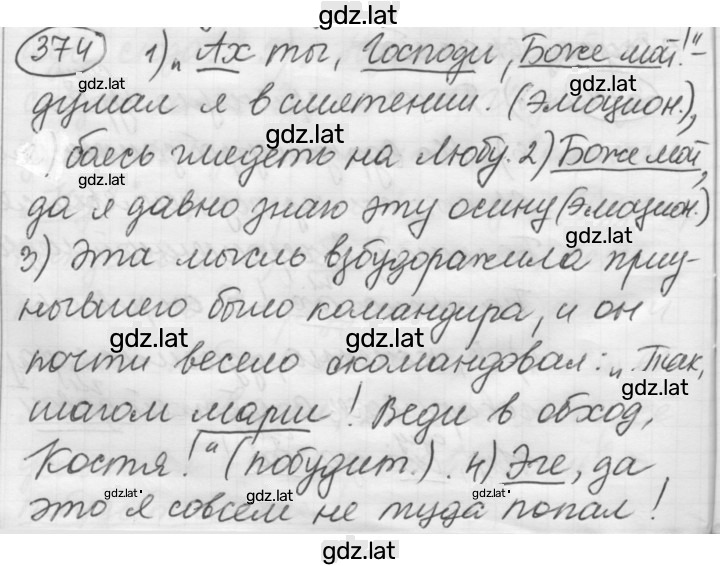 gdz.lat
374 1) „Ах ты, Господи, Боже мой!"-
gdz.lat gdz.lat
думал я в смятении. (Эмоцион.),
gdz.lat
боясь глядеть на Любу. 2) Боже мой,
gdz.lat
да я давно знаю эту осину (Эмоцион.)
gdz.lat
3) Эта мысль взбудоражила приу-
нывшего было командира, и он
gdz.lat gdz.lat
почти весело скомандовал: „Так,
gdz.lat
шагом марш! Веди в обход,
Костя!" (побудит.). 4) Эге, да
gdz.lat gdz.lat gdz.lat
это я совсем не туда попал!
gdz.lat